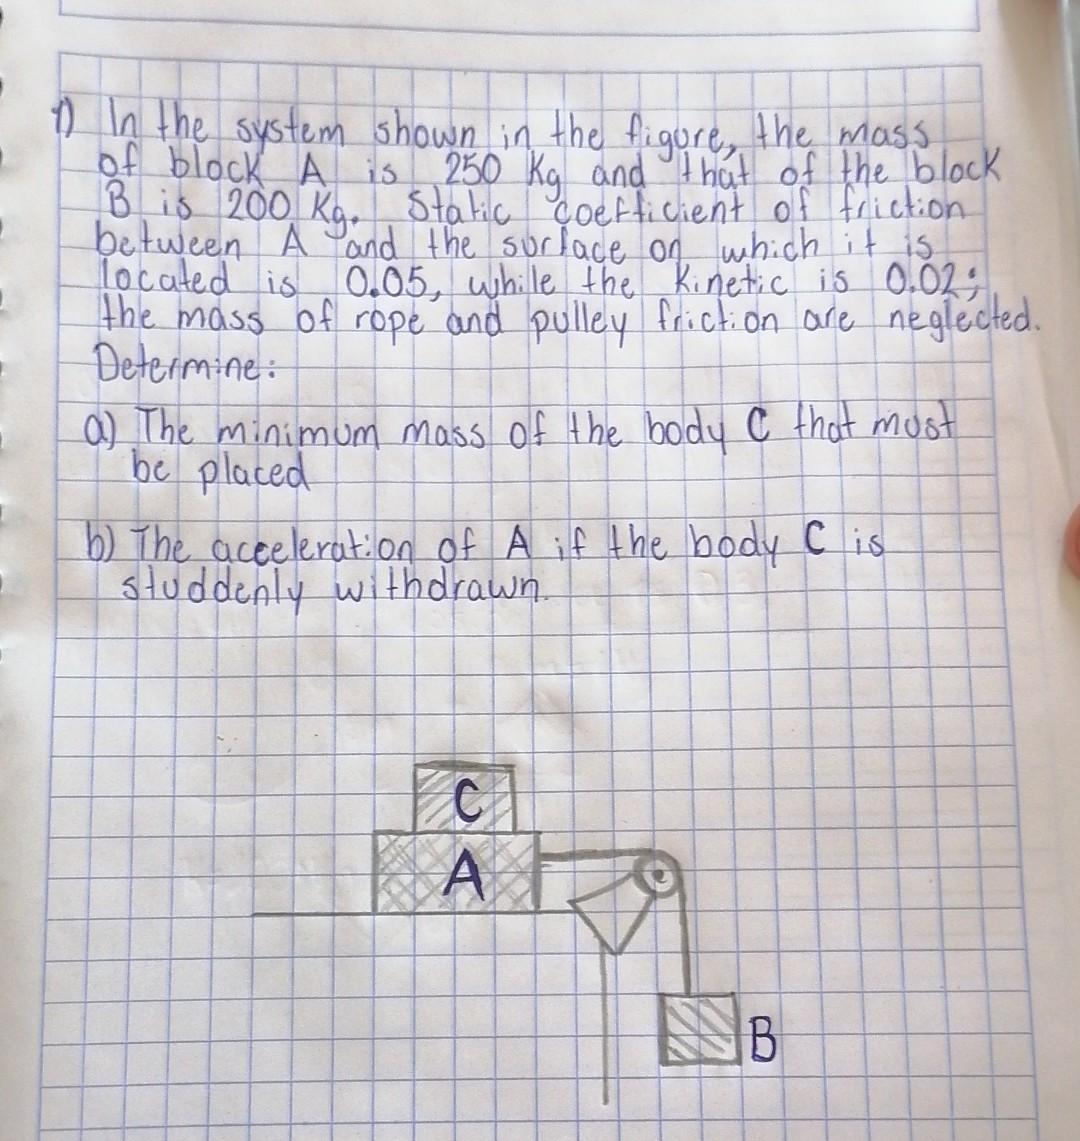 1) In the system shown in the figure, the mass
of block A is 250 Kg and that of the block
B is 200 Kg. Static coefficient of friction
between A and the surface on which it is
located is 0.05, while the kinetic is 0.02;
the mass of rope and pulley friction are neglected.
Determine:
a) The minimum mass of the body C that most
be placed
b) The acceleration of A if the body C is
studdenly withdrawn.
C
A
B